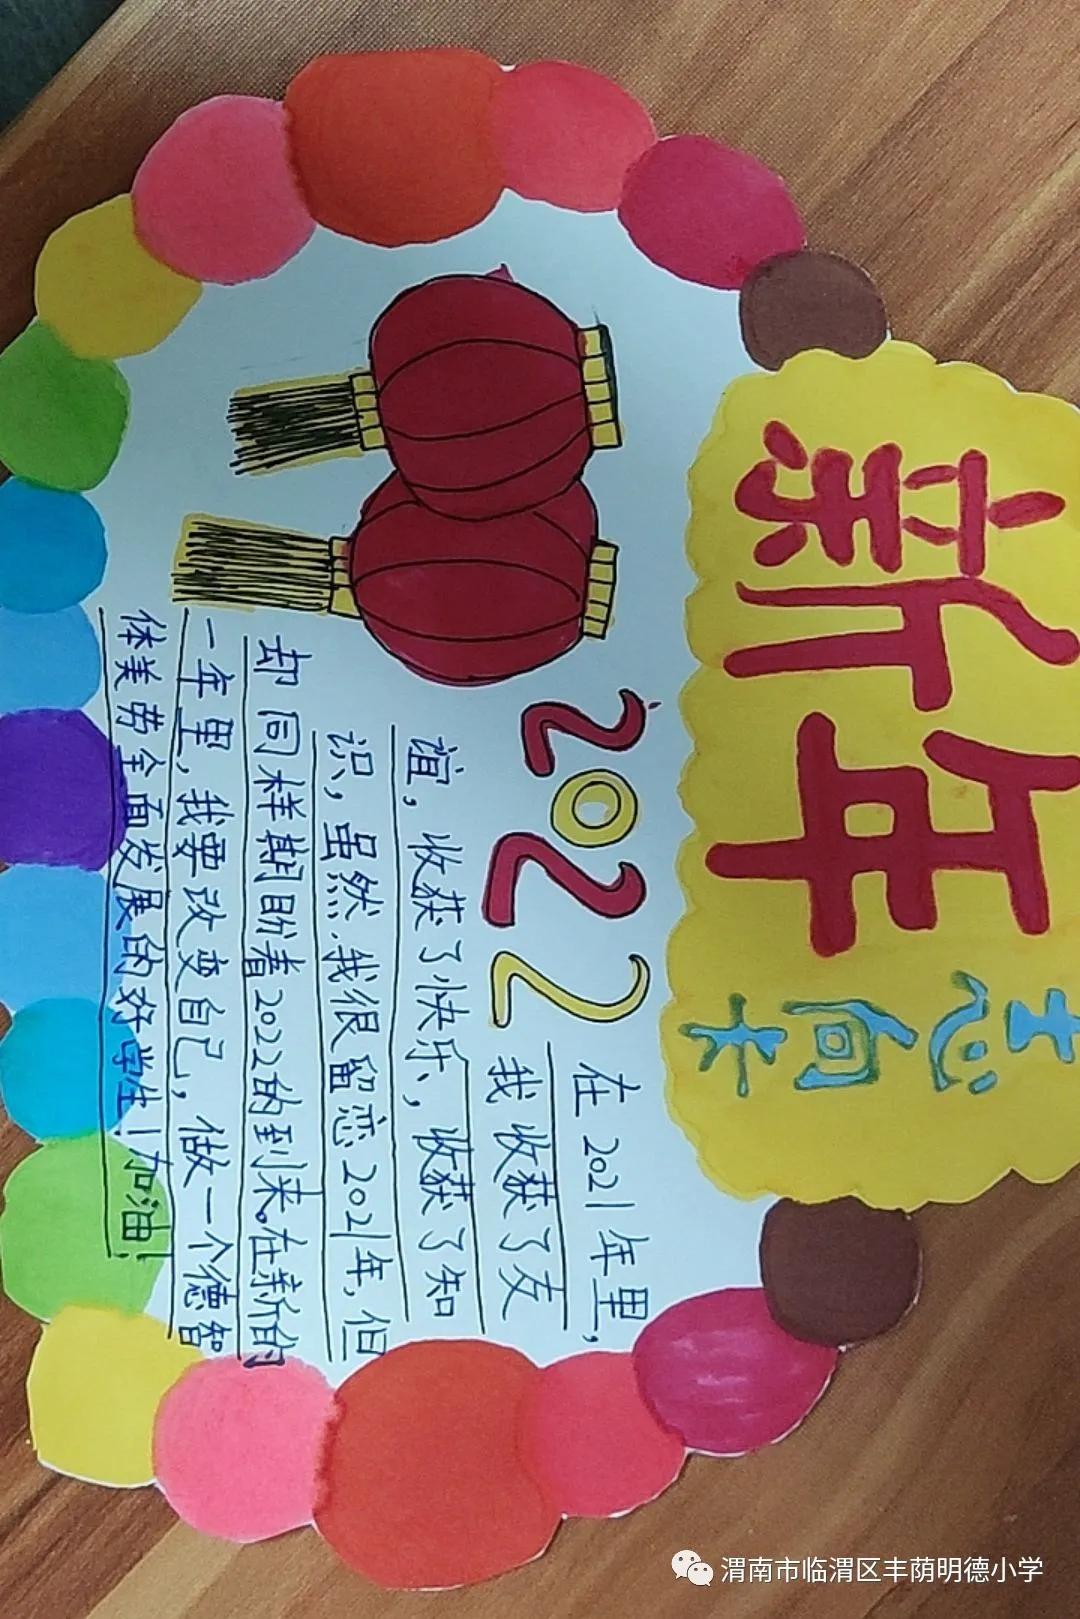 新年志向卡
2022
在2021年里,
我收获了友
谊,收获了快乐,收获了知
识,虽然,我很留恋2021年,但
却同样期盼着2022的到来。在新的
一年里,我要改变自己,做一个德智
体美劳全面发展的好学生!加油!
渭南市临渭区丰荫明德小学